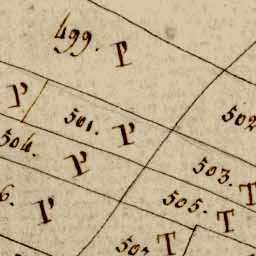 499. P
P
501. P
502
504.
P
503. T
6. P
505. T
507 T